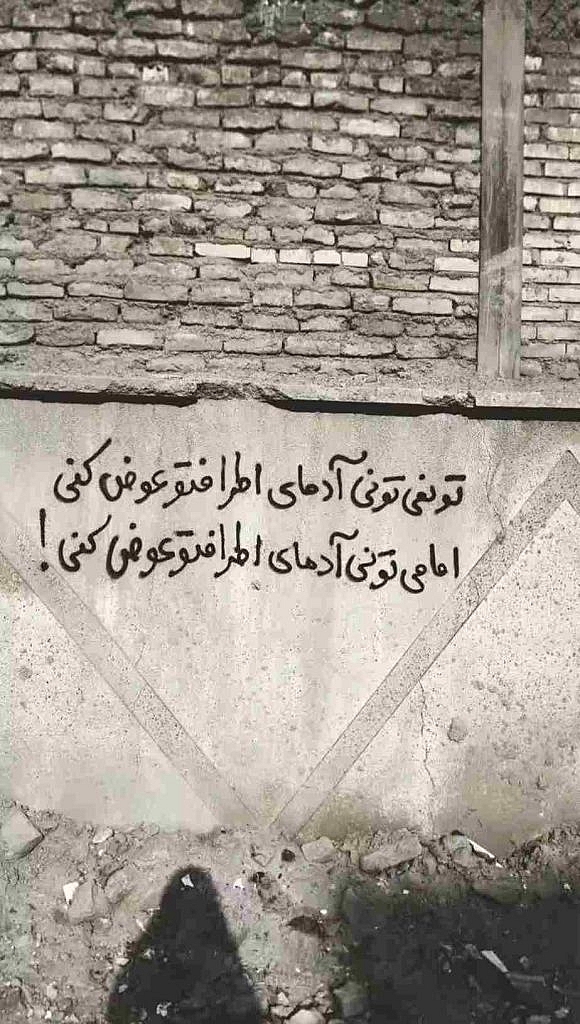 تو نمی تونی آدمای اطرافتو عوض کنی
اما می تونی آدمای اطرافتو عوض کنی !